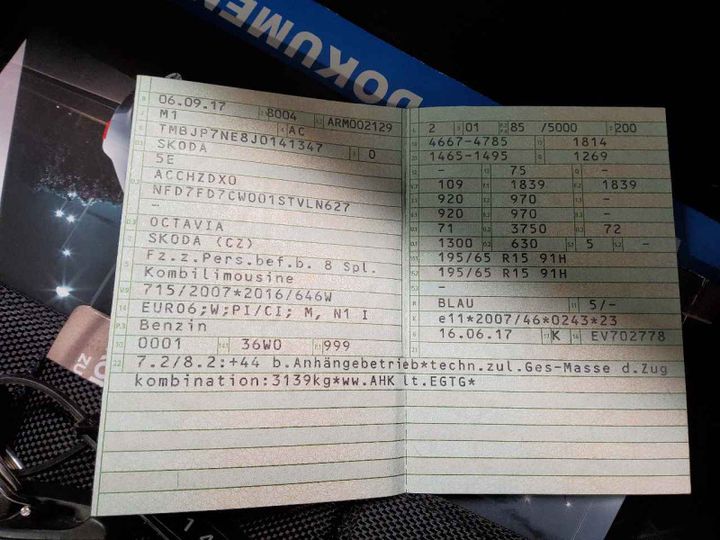 DOKUMEN
06.09.17 8004 ARM002129
M1 AC
TMBJP7NE8J0141347 0
SKODA
5E
ACCHZDX0
NFD7FD7CW001STVLN627
-
OCTAVIA
SKODA (CZ)
Fz.z.Pers.bef.b. 8 Spl.
Kombilimousine
715/2007*2016/646W
EURO6;W;PI/CI; M, N1 I
Benzin
0001 36W0 999
2 01 85 /5000 200
4667-4785 1814
1465-1495 1269
- 75 -
109 1839 1839
920 970 -
920 970 -
71 3750 72
1300 630 5 -
195/65 R15 91H
195/65 R15 91H
-
BLAU 5/-
e11*2007/46*0243*23
16.06.17 K EV702778
22 7.2/8.2:+44 b.Anhängebetrieb*techn.zul.Ges-Masse d.Zug
kombination:3139kg*ww.AHK lt.EGTG*